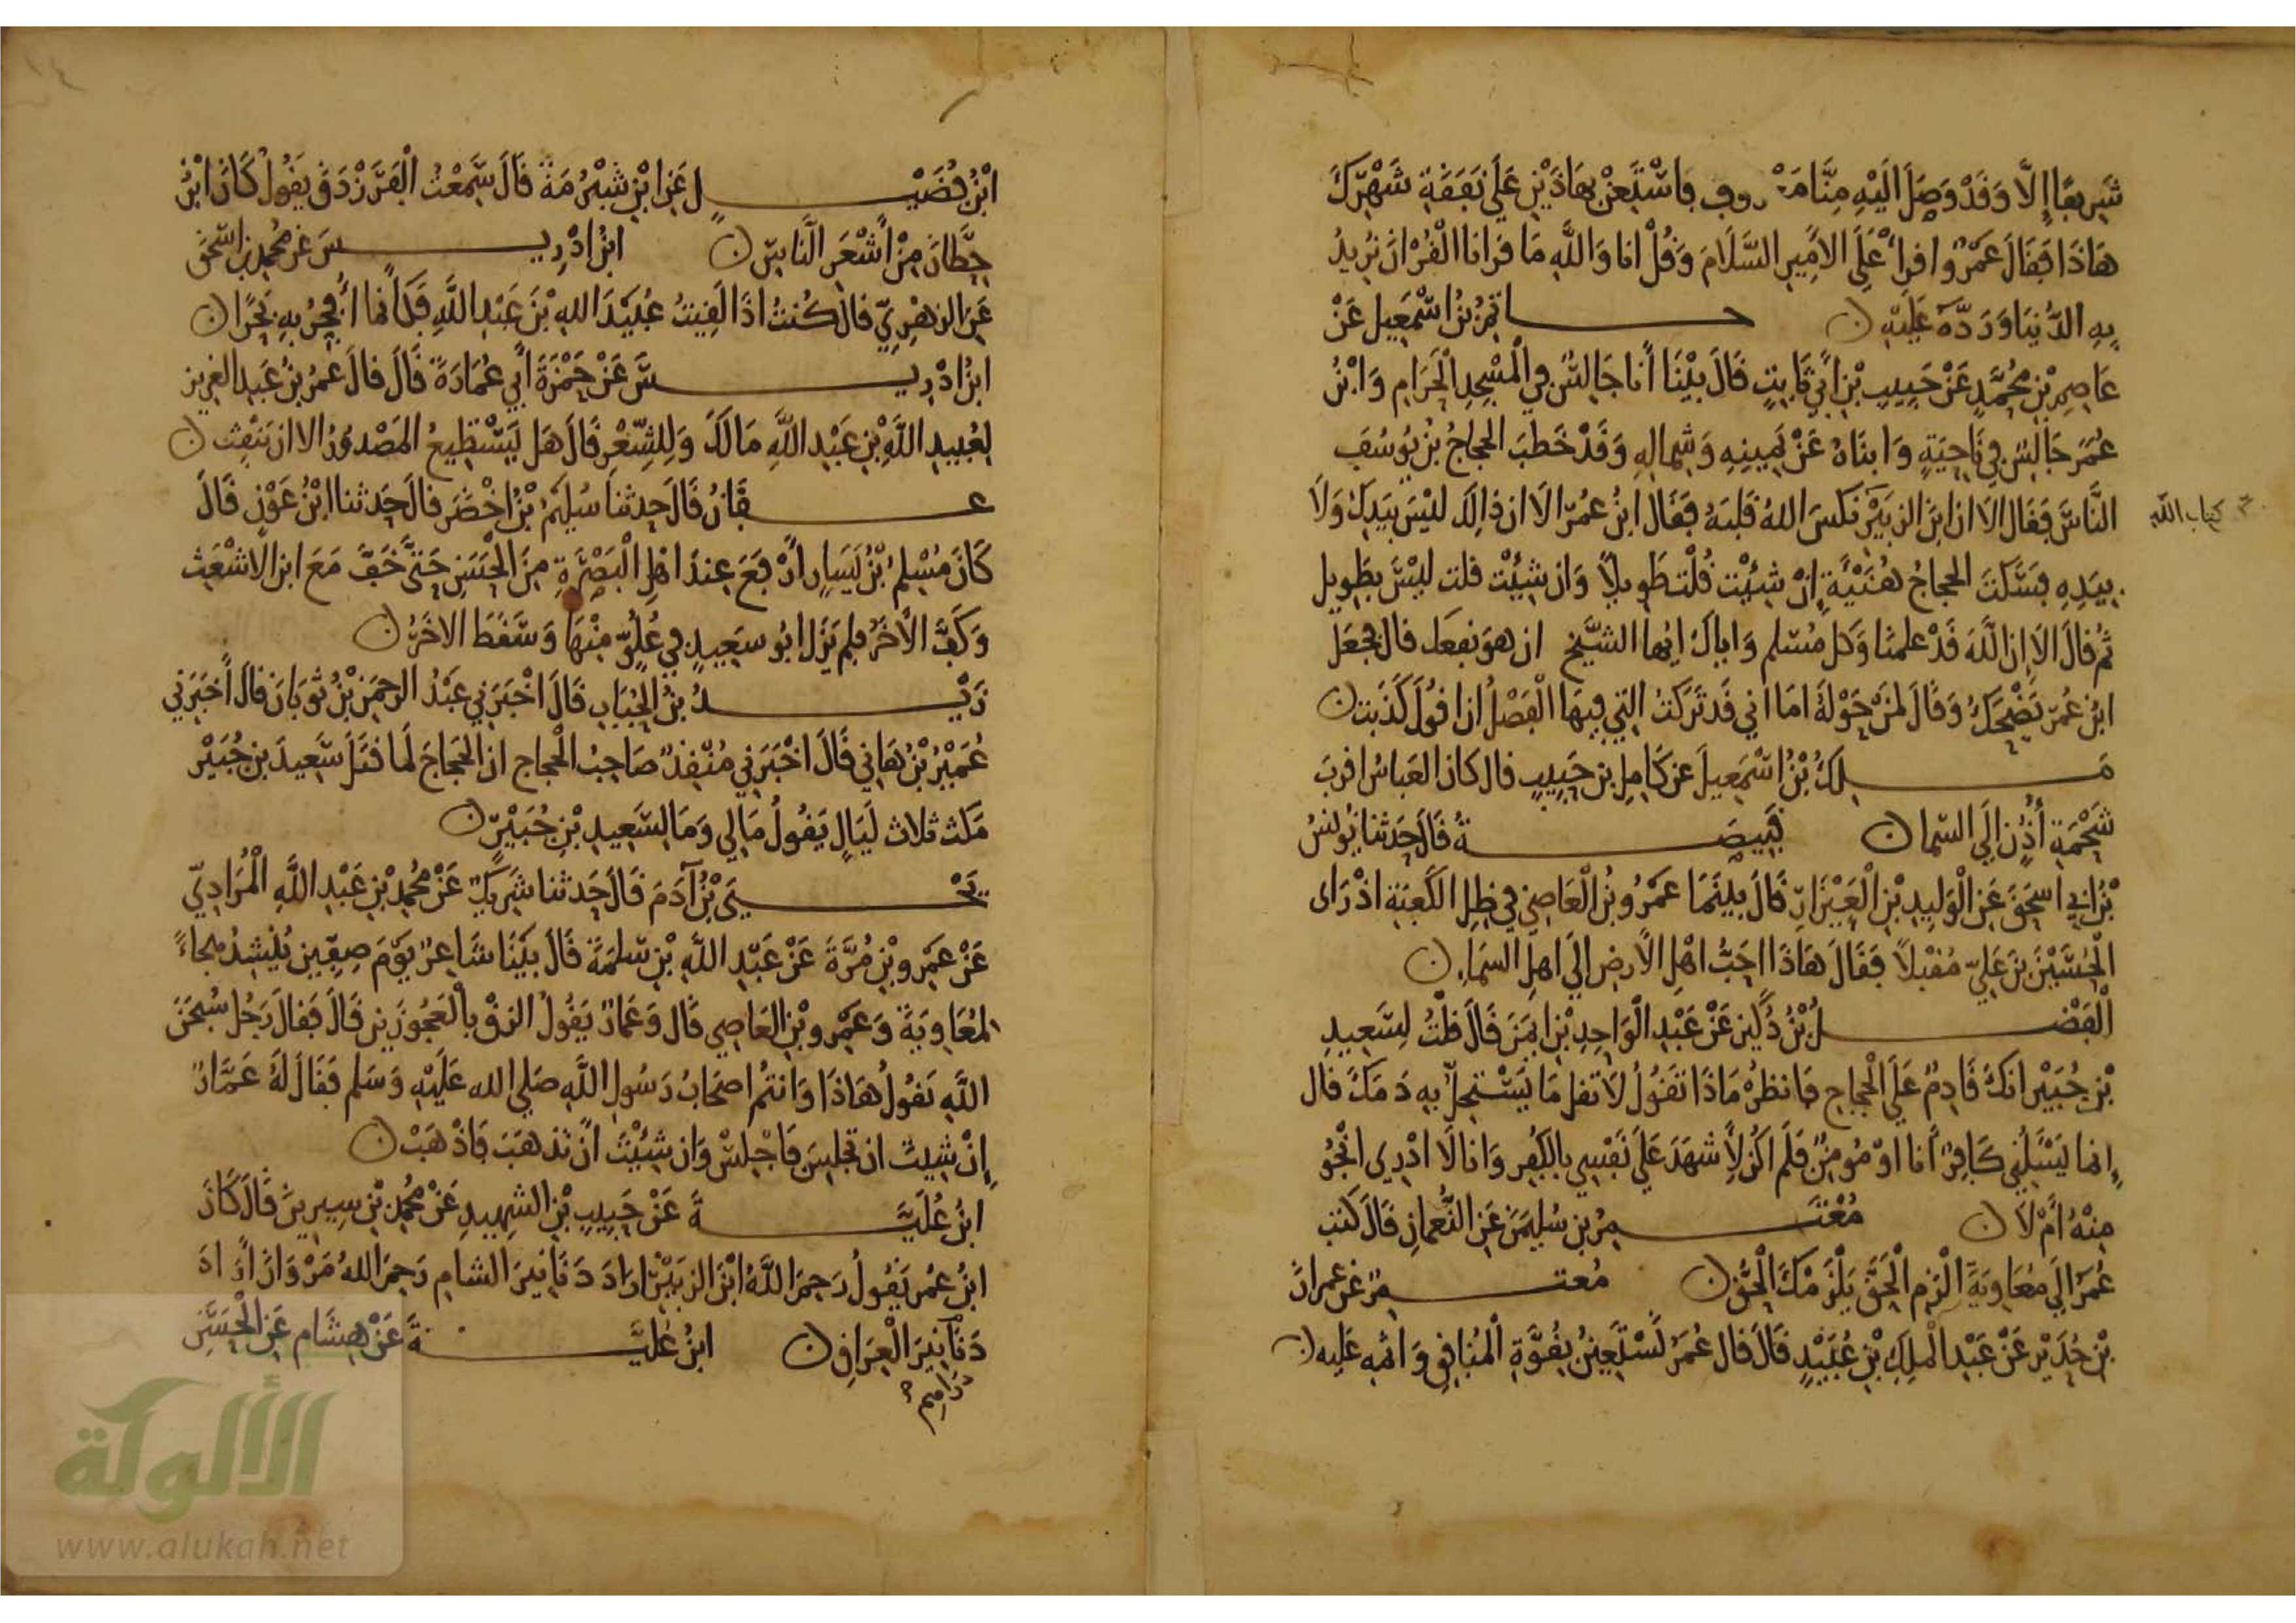 شريفا إلا وقد وصل إليه منا معروف فاستعن بهاذين على نفقة شهرك
هاذا فقال عمرو اقرأ على الامير السلام وقل انا والله ما قرانا القران نريد
به الدنيا ورده عليه ن حاتم بن اسمعيل عن
عاصم بن محمد عن حبيب بن أبي ثابت قال بينا أنا جالس في المسجد الحرام وابن
عمر جالس في ناحية وابناه عن يمينه وشماله وقد خطب الحجاج بن يوسف
الناس فقال الا ان ابن الزبير نكس الله قلبه فقال ابن عمر الا ان ذالك ليس بيدك ولا
كتاب الله
بيده فسكت الحجاج هنيئة إن شئت قلت طويلا وان شئت قلت ليس بطويل
ثم قال الا إن الله قد علمنا وكل مسلم واياك ايها الشيخ ان هو نفعك قال فجعل
ابن عمر يضحك وقال لمن حوله اما اني قد تركت التي فيها الفصل ان اقول كذبت ن
ملك بن اسمعيل عن كامل بن حبيب قال كان العباس اقرب
شحمة أذن إلى السما ن قبيصة قال حدثنا يونس
بن ابي اسحق عن الوليد بن العيزار قال بينما عمرو بن العاصي في ظل الكعبة اذ راى
الحسين بن علي مقبلا فقال هاذا احب اهل الارض الى اهل السماء ن
الفضل بن دكين عن عبد الواحد بن ايمن قال قلت لسعيد
بن جبير انك قادم على الحجاج فانظر ماذا تقول لا تقل ما يستحل به دمك قال
إنما يسئلني كافر أنا او مومن فلم اكن لأشهد على نفسي بالكفر وانا لا ادري انجو
منه أم لا ن معتمر بن سليمن عن النعمان قال كتب
عمر الى معاوية الزم الحق يلزمك الحق ن معتمر عن عمران
بن حدير عن عبد الملك بن عبيد قال قال عمر نستعين بقوة المنافق واثمه عليه ن
١٤
ابن فضيل عن ابن شبرمة قال سمعت الفرزدق يقول كان ابن
حطان من أشعر الناس ن ابن ادريس عن محمد بن اسحق
عن الزهري قال كنت اذا لقيت عبيد الله بن عبد الله فكأنما أفجر به بحرا ن
ابن ادريس عن حمزة أبي عمارة قال قال عمر بن عبد العزيز
لعبيد الله بن عبد الله مالك وللشعر قال هل يستطيع المصدور الا ان ينفث ن
عفان قال حدثنا سليم بن اخضر قال حدثنا ابن عون قال
كان مسلم بن يسار أرفع عند اهل البصرة من الحسن حتى خف مع ابن الاشعث
وكف الأخر فلم يزل ابو سعيد في علو منها وسقط الاخر ن
زيد بن الحباب قال اخبرني عبد الرحمن بن ثوبان قال أخبرني
عمير بن هاني قال اخبرني منقذ صاحب الحجاج ان الحجاج لما قتل سعيد بن جبير
مكث ثلاث ليال يقول مالي وما لسعيد بن جبير ن
يحيى بن آدم قال حدثنا شريك عن محمد بن عبد الله المرادي
عن عمرو بن مرة عن عبد الله بن سلمة قال بينا شاعر يوم صفين ينشد هجاء
لمعاوية وعمرو بن العاصي قال وعمار يقول الزق بالعجوزين قال فقال رجل سبحن
الله تقول هاذا وانتم اصحاب رسول الله صلى الله عليه وسلم فقال له عمار
إن شيت ان تجلس فاجلس وان شئت ان تذهب فاذهب ن
ابن علية عن حبيب بن الشهيد عن محمد بن سيرين قال كان
ابن عمر يقول رحم الله ابن الزبير اراد دنانير الشام رحم الله مروان أراد
دنانير العراق ن ابن علية عن هشام عن الحسن
دراهم
الألوكة
www.alukah.net